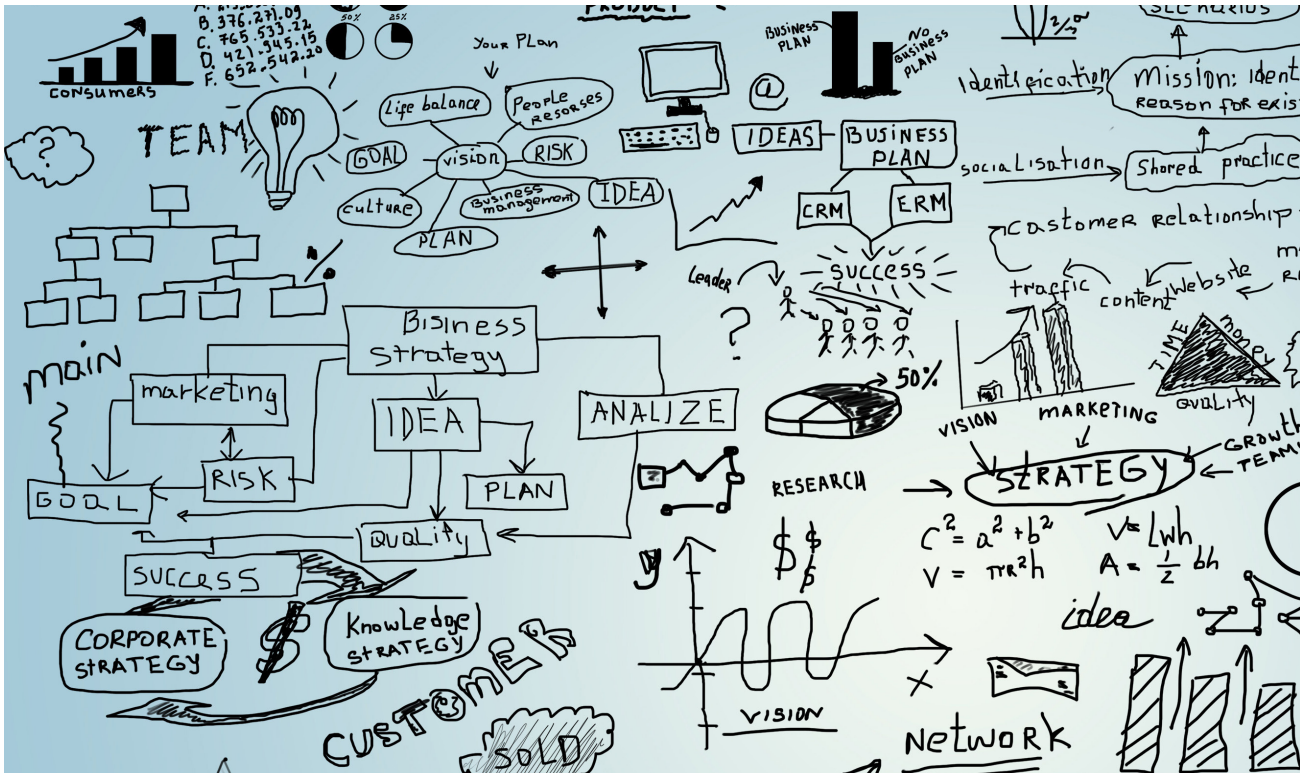 B. 376.271.09
C. 765.533.22
D. 421.945.15
F. 652.542.20
50%
25%
CONSUMERS
PRODUCT
Your Plan
Life balance
People
resorses
GOAL
vision
RISK
culture
Business
management
IDEA
PLAN
TEAM
?
BUSINESS
PLAN
NO
BUSINESS
PLAN
@
IDEAS
BUSINESS
PLAN
CRM
ERM
SUCCESS
Leader
?
Identification
Mission: Ident
Reason for exis
socialisation
Shared practice
Castomer Relationship
traffic
content
Website
TIME
money
QUALITY
VISION
MARKETING
STRATEGY
GROWTH
TEAM
main
Bisiness
Strategy
marketing
IDEA
ANALIZE
RISK
PLAN
GOAL
QUALITY
SUCCESS
50%
RESEARCH
$ $
$
C² = a² + b²
V = πr²h
V = Lwh
A = 1/2 bh
idea
CORPORATE
STRATEGY
$
Knowledge
STRATEGY
CUSTOMER
SOLD
y
x
VISION
NETWORK